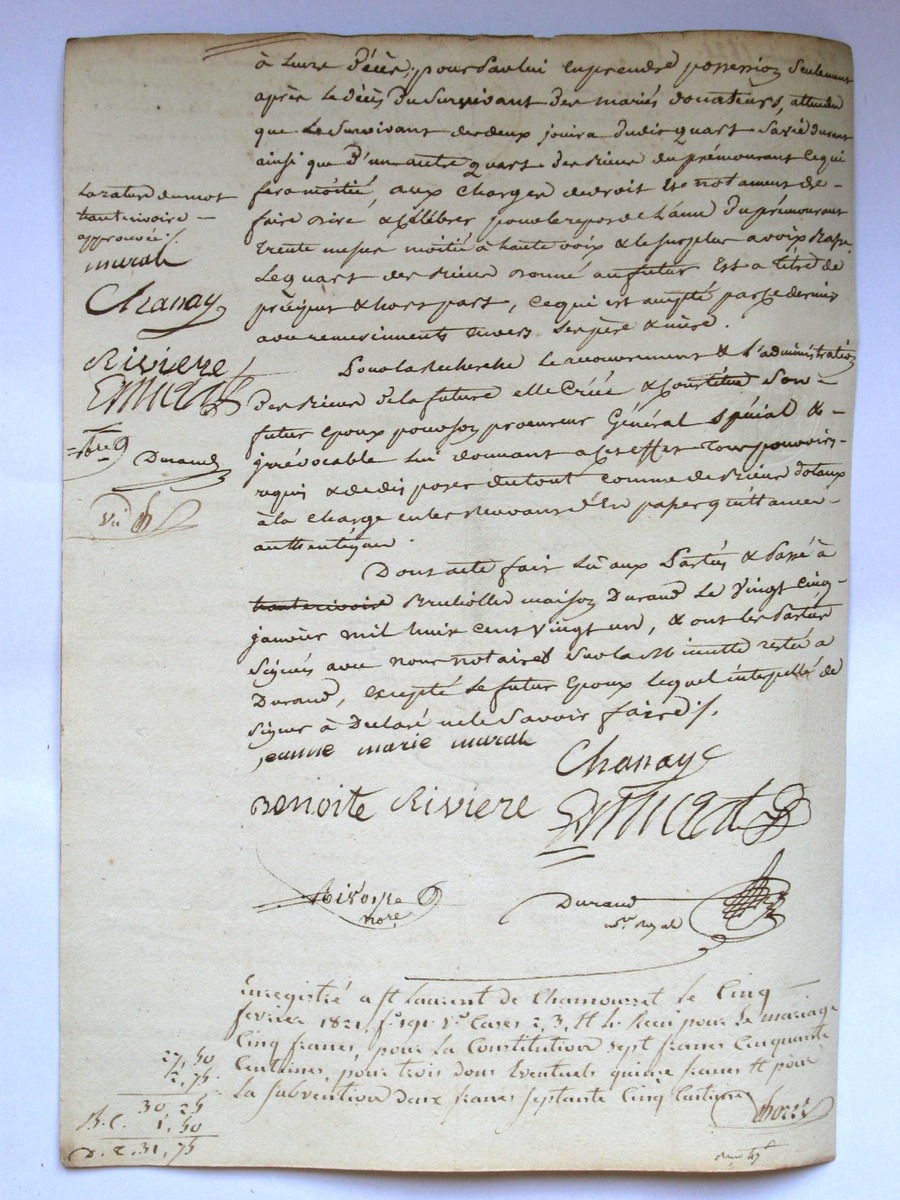 à leurs décès, pour par lui en prendre possession seulement
après le décès du survivant des mariés donateurs, attendu
que le survivant des deux jouira dudit quart sa vie durant
ainsi que d'un autre quart des biens du prémourant ce qui
fera moitié, aux charges de droit et notament de
faire dire & célébrer pour le repos de l'âme du prémourant
trente messes moitié à haute voix & le surplus à voix basse
Le quart des biens donné au futur est a titre de
préciput & hors part, ce qui est accepté par ce dernier
avec remerciments envers ses père & mère.
Pour la recherche le recouvrement & l'administration
des biens de la future elle créé & constitue son
futur époux pour son procureur général spécial &
irrévocable lui donnant a cet effet tous pouvoirs
requis & de disposer du tout comme de biens dotaux
à la charge en les recevant d'en passer quittances
authentiques.
Dont acte fait lu aux parties & passé à
hauterivoire Brullioles maison Durand le vingt cinq
janvier mil huit cent vingt un, & ont les parties
signés avec nous notaires sur la minutte restée a
Durand, excepté le futur époux lequel interpellé de
signer à déclaré ne le savoir faire ./.
jeanne marie murat
Chanay
Benoite Riviere
nore
Durand
nre royal
La rature du mot
hauterivoire
approuvée ./.
murat
Chanay
Riviere
Durand
Enregistré a St Laurent de Chamousset le Cinq
fevrier 1821 fo 191 Vo Cases 2, 3, 4 Reçu pour le mariage
Cinq francs, pour la Constitution sept francs Cinquante
Centimes, pour trois dons Eventuels quinze francs et pour
la subvention deux francs septante Cinq Centimes
27,50
2,75
30,25
1,50
31,75